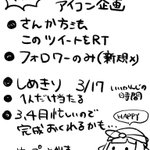 アイコン企画
●さんかちさも
このツイートをRT
●フォロワーのみ(新規×)
●しめきり 3/17
いいかんじの時間
●1人だけ当たる
●3,4日忙しいので
完成おくれるかも…
HAPPY